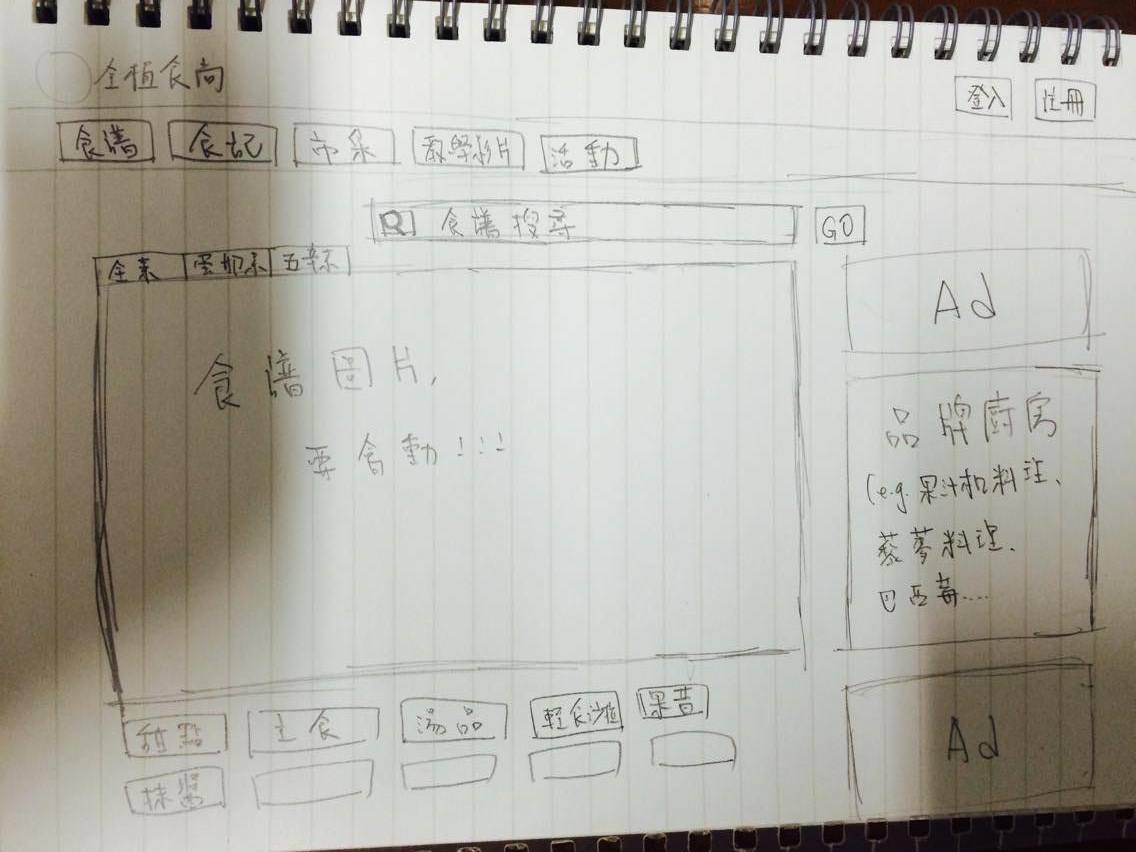 全植食尚
登入 註冊
食譜 食記 市集 教學影片 活動
食譜搜尋 GO
全素 蛋奶素 五辛素
Ad
食譜圖片,
要會動!!!
品牌廚房
(e.g.果汁机料理、
藜麥料理、
巴西莓....
甜點 主食 湯品 輕食沙拉 果昔
抹醬
Ad